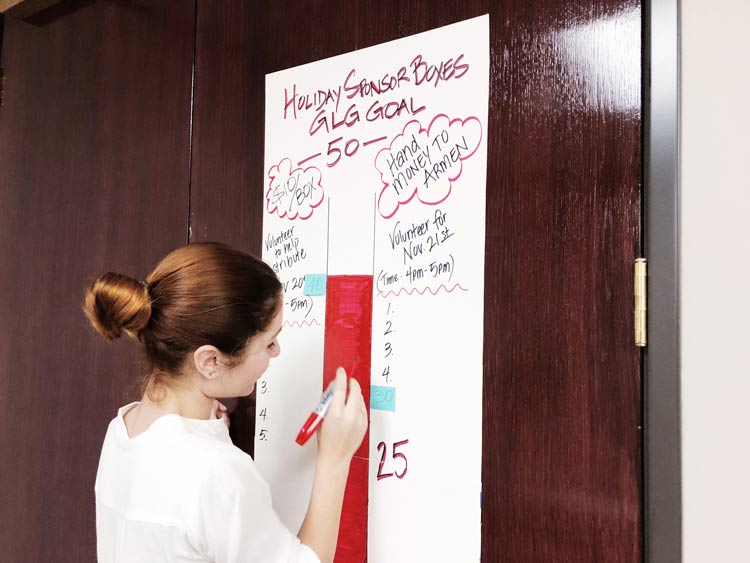 HOLIDAY SPONSOR BOXES
GLG GOAL
— 50 —
$10/BOX
Hand
MONEY TO
ARMEN
Volunteer
to help
20
- 5pm)
Volunteer for
Nov. 21st
(Time - 4pm-5pm)
40
1.
2.
3.
4.
30
3.
4.
5.
25